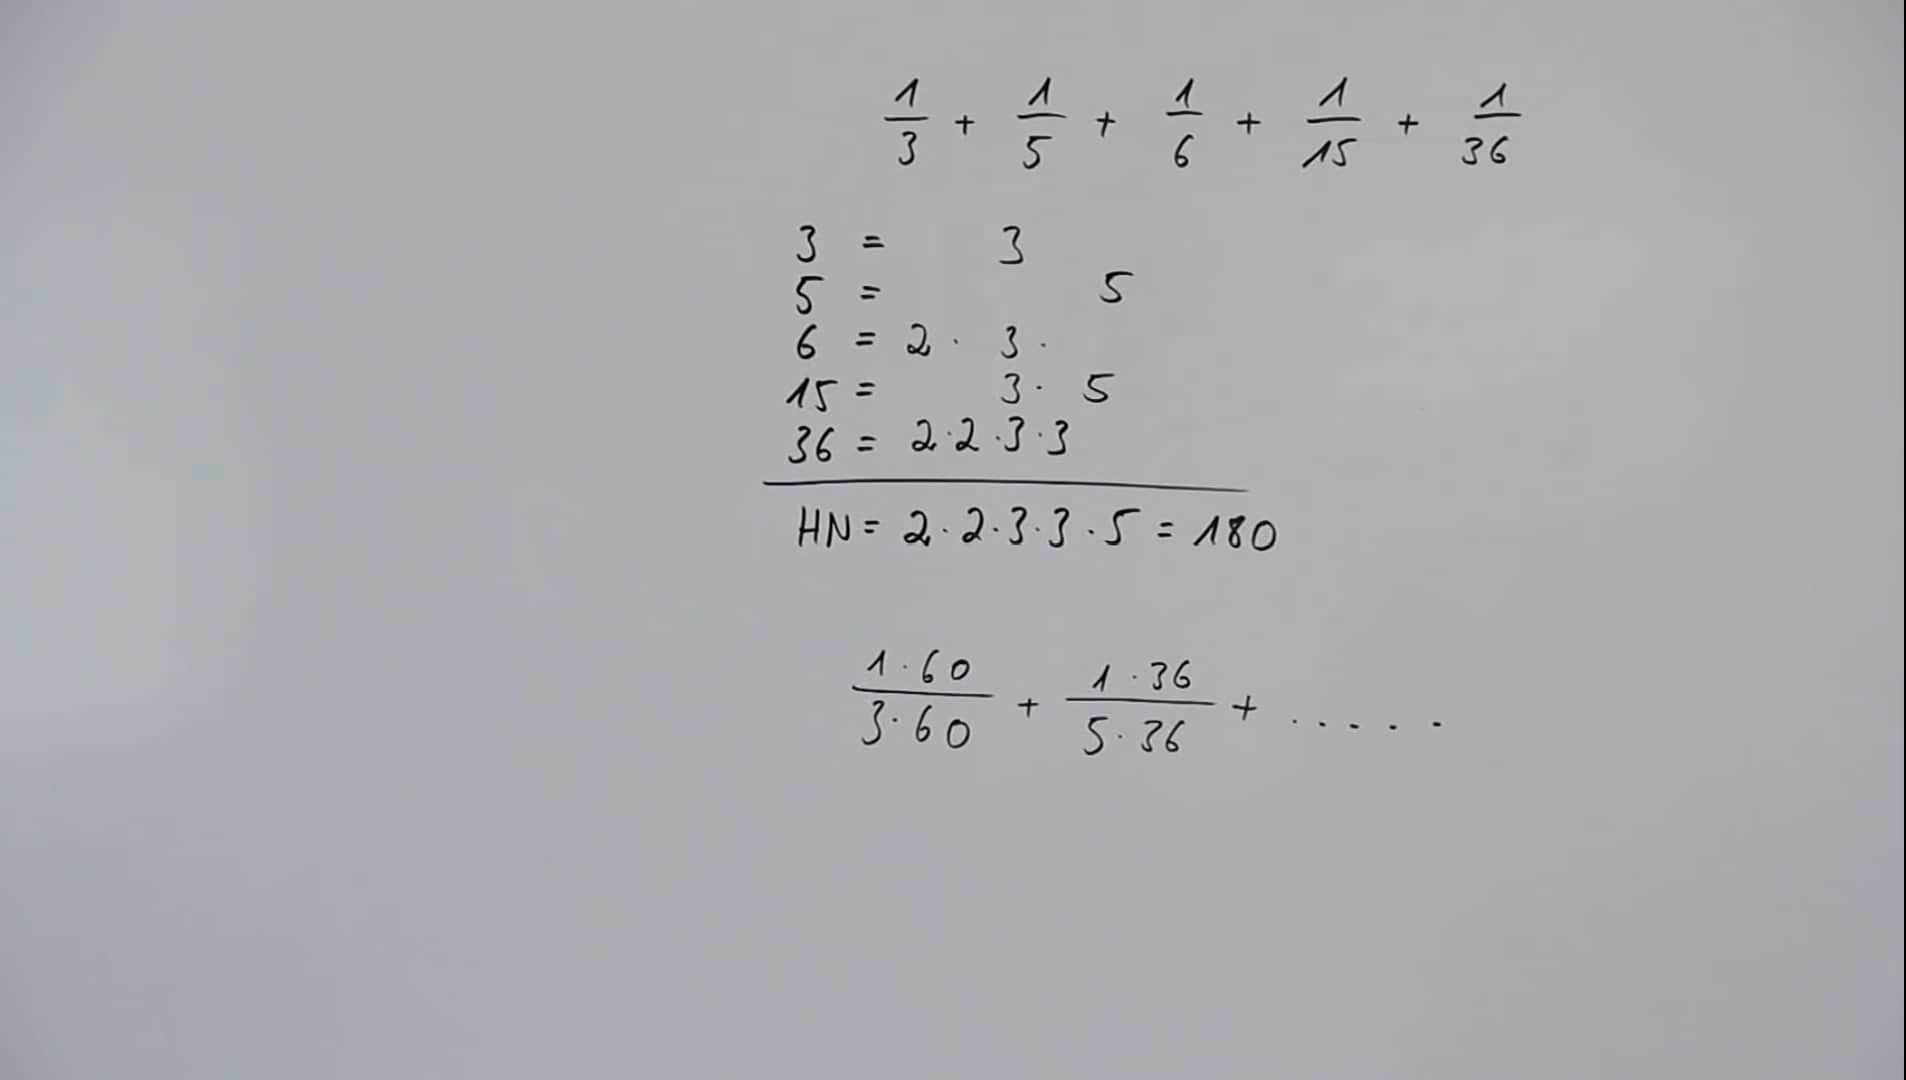 1/3 + 1/5 + 1/6 + 1/15 + 1/36
3 = 3
5 = 5
6 = 2 · 3 ·
15 = 3 · 5
36 = 2 · 2 · 3 · 3
HN = 2 · 2 · 3 · 3 · 5 = 180
1 · 60 / 3 · 60 + 1 · 36 / 5 · 36 + . . . . .